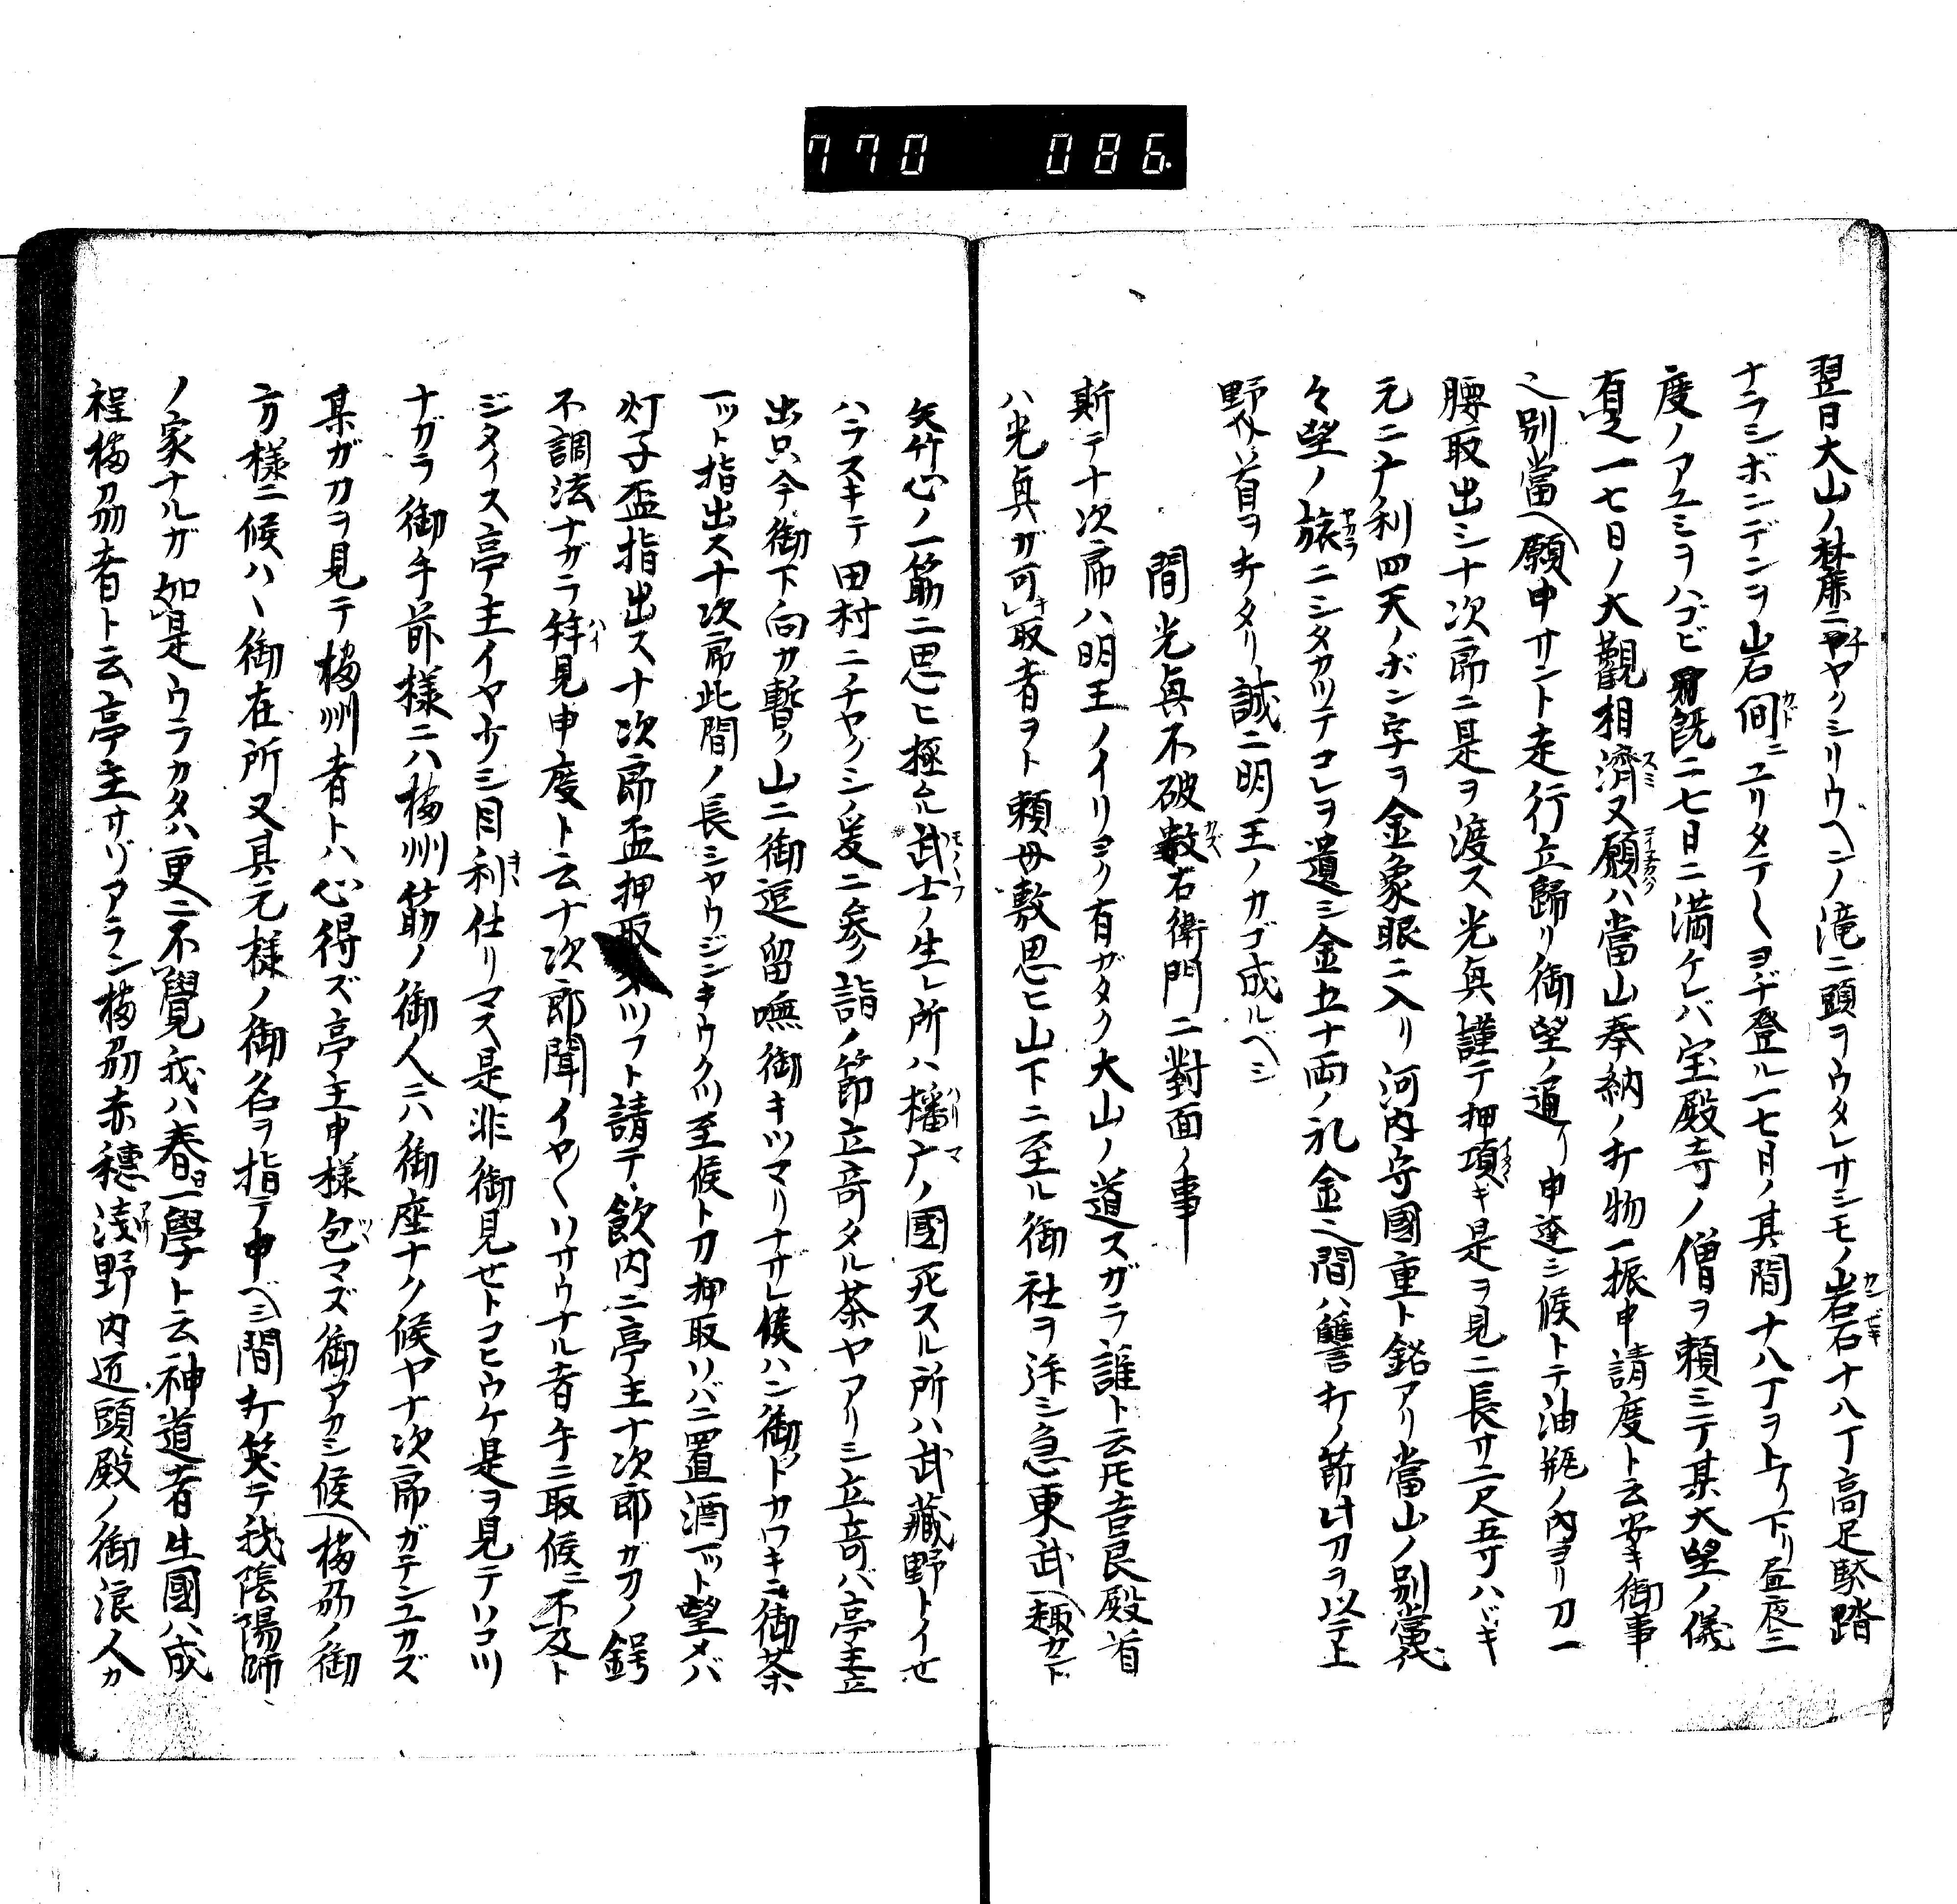 770 086.
翌日大山ノ林麓ニチヤクシリウヘンノ滝ニ頭ヲウタレサシモノ岩石十八丁高足駄踏
ナラシボンデンヲ山岩間ニユリタテ〱ヲチ登ル一七日ノ其間十八丁ヲ上リ下リ昼夜ニ二
度ノアユミヲハゴビ既ニ七日ニ満ケレバ宝殿寺ノ僧ヲ頼ミテ某大望ノ儀
有之一七日ノ大觀相濟又願ハ當山奉納ノ打物一振申請度ト云安キ御事
別當へ願申サント走行立歸リ御望ノ通リ申達シ候トテ油瓶ノ内ヨリ刀一
腰取出シ十次郎ニ是ヲ渡ス光眞謹テ押項キ是ヲ見ニ長サ二尺五寸ハバキ
元ニナ利四天ノボン字ヲ金象眼ニ入リ河内守國重ト銘アリ當山ノ別當代
々望ノ旅ニシタカツテコレヲ遺シ金五十両ノ礼金之間ハ讐打ノ節此刀ヲ以テ上
野介首ヲ打タリ誠ニ明王ノカゴ成ルベシ
間光眞不破数右衛門ニ對面ノ事
斯テ十次郎ハ明王ノイリヨク有ガタク大山ノ道スガラ誰ト云モ吉良殿首
ハ光眞ガ可取者ヲト頼母敷思ヒ山下ニ至ル御社ヲ拝シ急東武へ趣カント
矢竹心ノ一筋ニ思ヒ極ムル武士ノ生レ所ハ播广ノ國死スル所ハ武藏野トイセ
ハラスキテ田村ニノチヤクシノ爰ニ参リ詣ノ節立寄タル茶ヤアリシ立寄バ亭主立
出只今御下向カ暫ク山ニ御逗留嘸御キツマリナサレ候ハン御ノトカワキニ御茶
一ツト指出ス十次郎此間ノ長シヤウジンキウクツ至候ト刀押取リバニ置酒一ツト望メバ
灯子盃指出ス十次郎盃押取ツフト請テ飲内ニ亭主十次郎ガ刀ノ鍔
不調法ナガラ拝見申度ト云十次郎聞イヤ〱リサウナル者手ニ取候ニ不及ト
ジタイス亭主イヤ少シ目利仕リマス是非御見セトコヒウケ是ヲ見テリコツ
ナガラ御手前様ニハ播州筋ノ御人ニハ御座ナク候ヤ十次郎ガテンユカズ
某ガ刀ヲ見テ播州者トハ心得ズ亭主申様包マズ御アカシ候へ播刕ノ御
方様ニ候ハヽ御在所又其元様ノ御名ヲ指テ申ベシ間打笑テ我陰陽師
ノ家ナルガ如是ウラカタハ更ニ不覺我ハ春日一學ト云神道者生國ハ成
程播刕者ト云亭主サゾアラン播刕赤穗浅野内近頭殿ノ御浪人カ